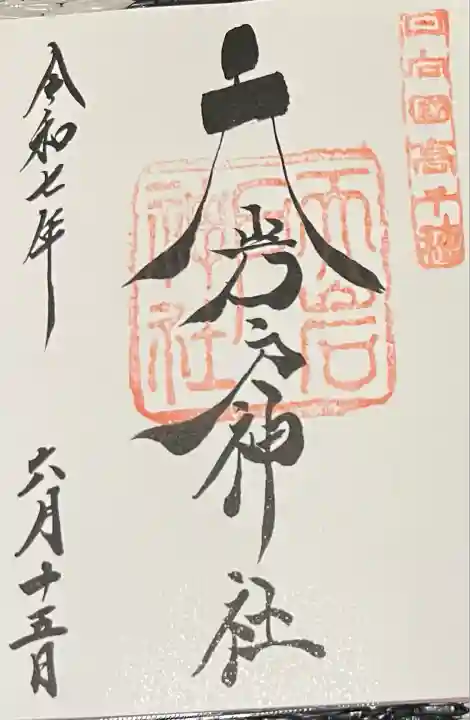 日向國高千穂
天岩戸神社
天岩戸神社
令和七年 六月十五日